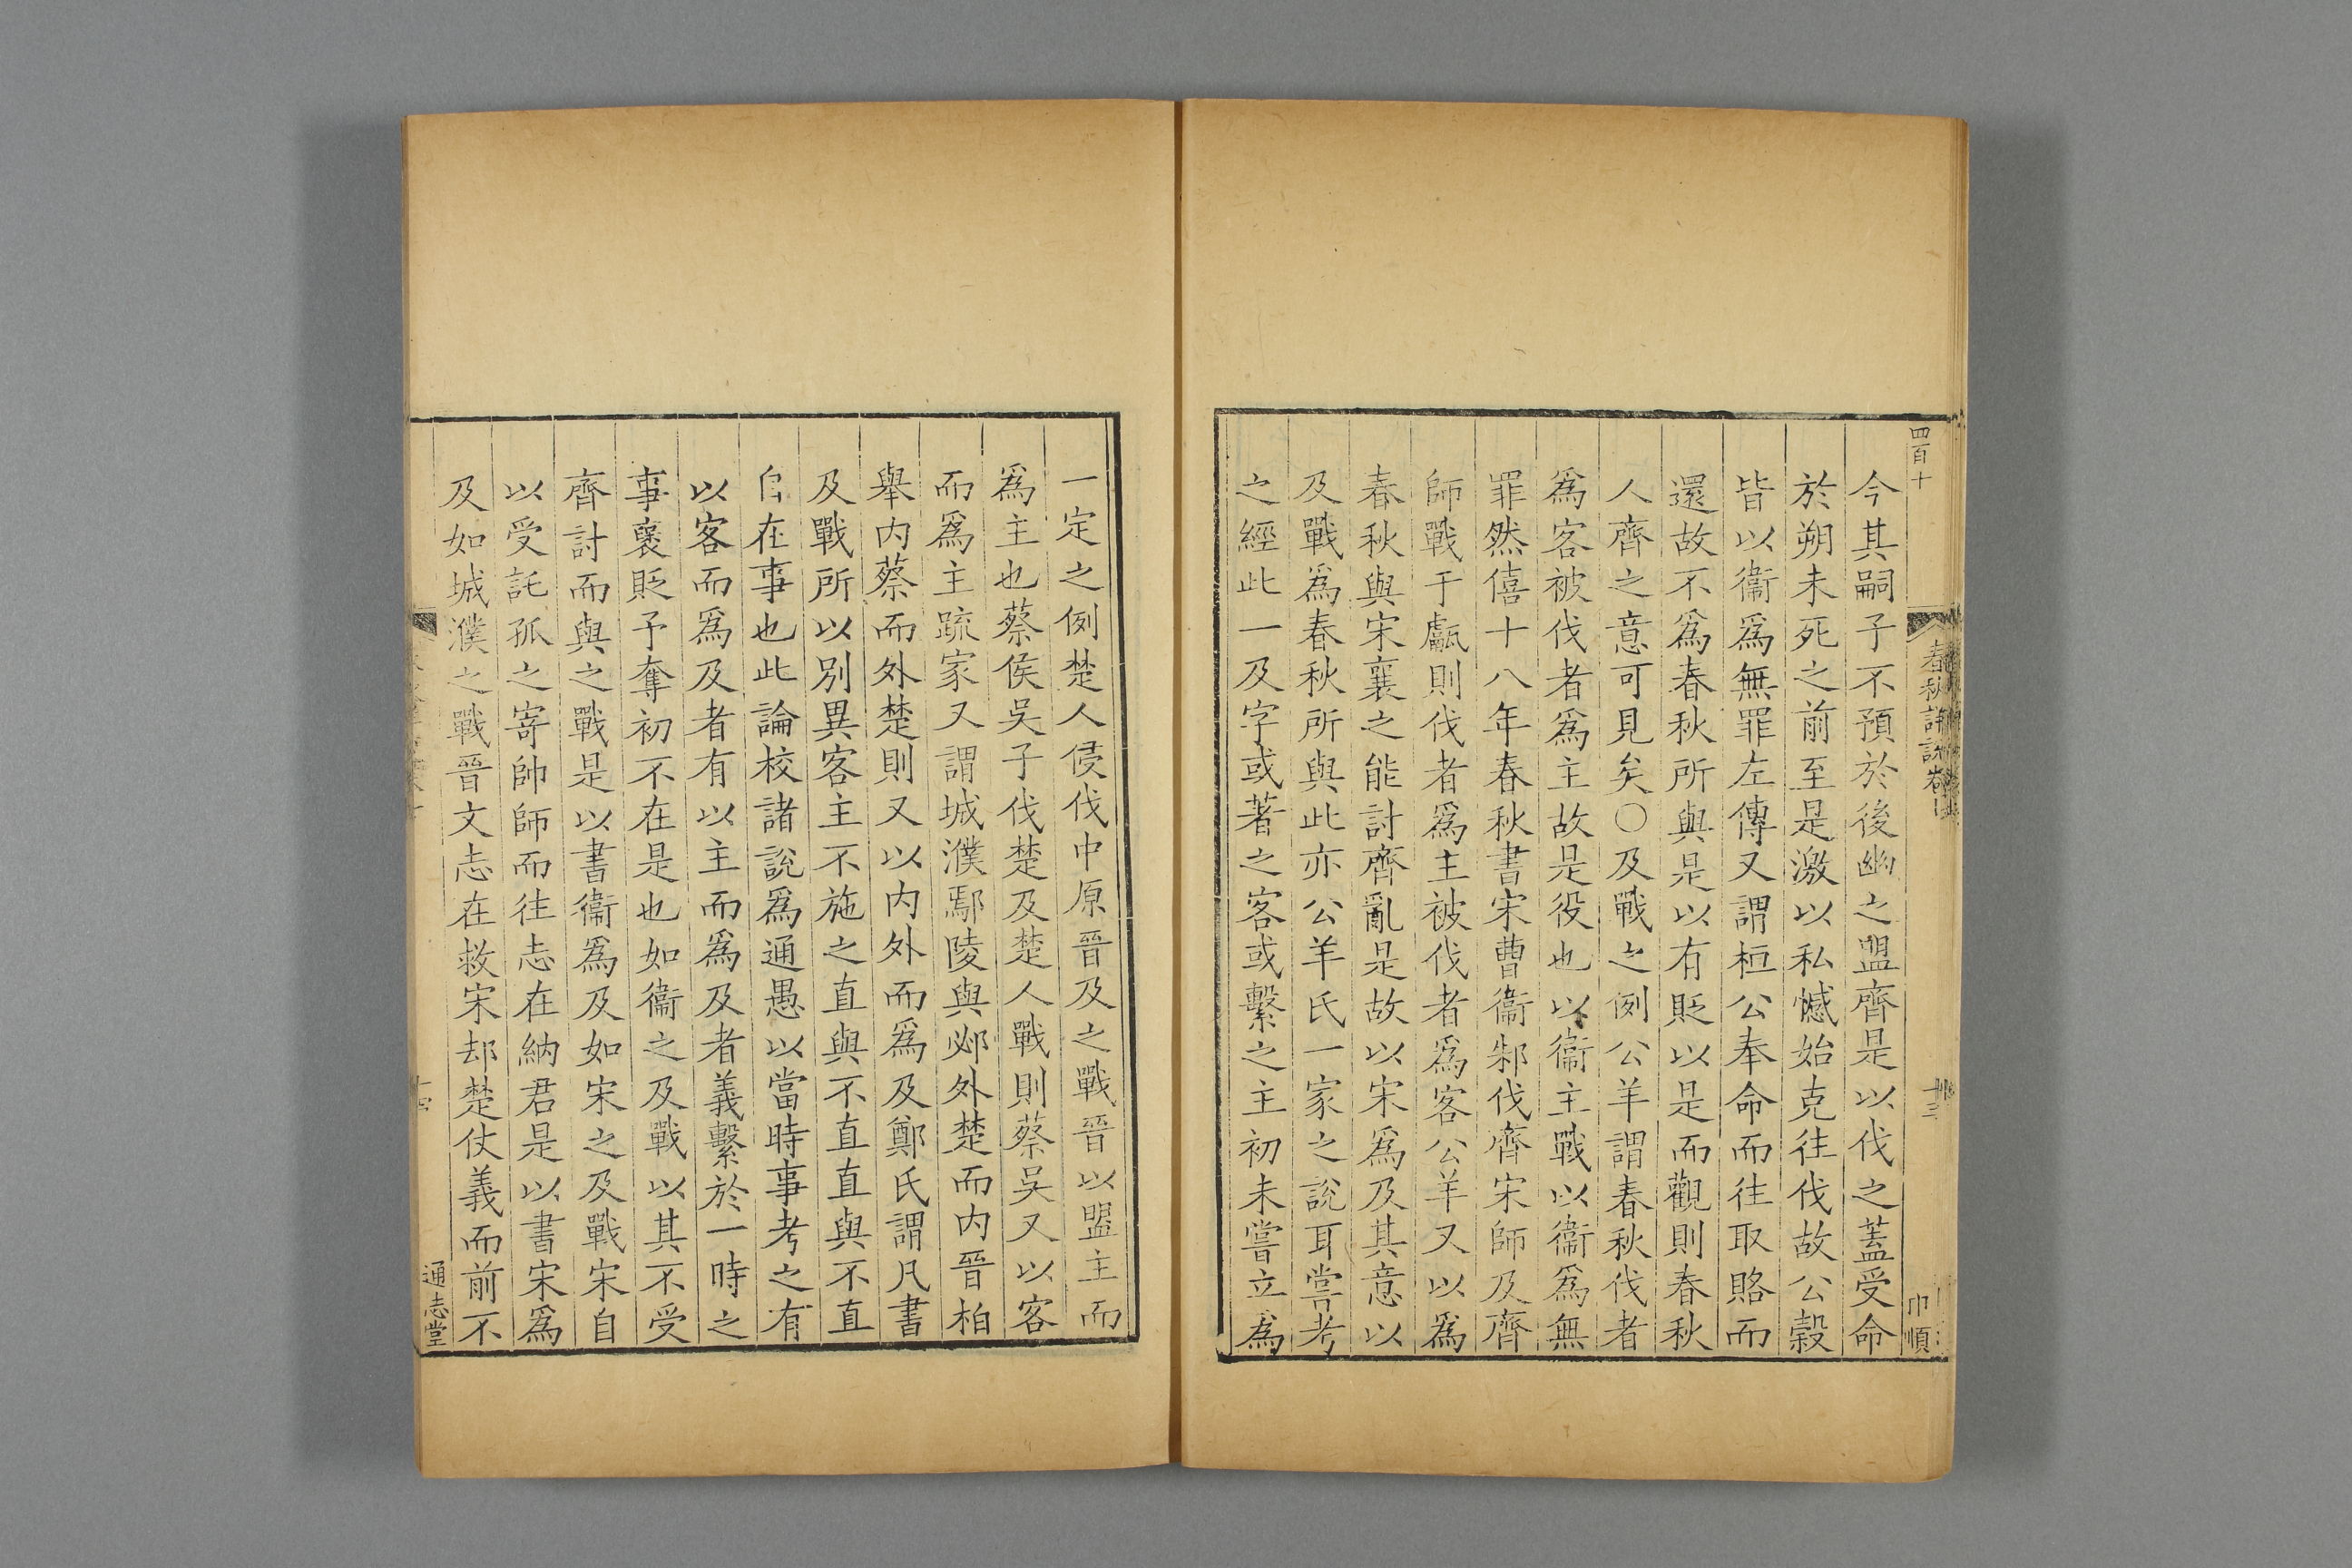 四百十
春秋詳說卷
巾順
今其嗣子不預於後幽之盟齊是以伐之蓋受命
於朔未死之前至是激以私憾始克往伐故公穀
皆以衞爲無罪左傳又謂桓公奉命而往取賂而
還故不爲春秋所與是以有貶以是而觀則春秋
人齊之意可見矣○及戰之例公羊謂春秋伐者
爲客被伐者爲主故是役也以衞主戰以衞爲無
罪然僖十八年春秋書宋曹衞邾伐齊宋師及齊
師戰于甗則伐者爲主被伐者爲客公羊又以爲
春秋與宋襄之能討齊亂是故以宋爲及其意以
及戰爲春秋所與此亦公羊氏一家之說耳嘗考
之經此一及字或著之客或繫之主初未嘗立爲
一定之例楚人侵伐中原晉及之戰晉以盟主而
爲主也蔡侯吳子伐楚及楚人戰則蔡吳又以客
而爲主疏家又謂城濮鄢陵與邲外楚而内晉柏
舉内蔡而外楚則又以内外而爲及鄭氏謂凡書
及戰所以別異客主不施之直與不直直與不直
自在事也此論校諸說爲通愚以當時事考之有
以客而爲及者有以主而爲及者義繫於一時之
事襃貶予奪初不在是也如衞之及戰以其不受
齊討而與之戰是以書衞爲及如宋之及戰宋自
以受託孤之寄帥師而往志在納君是以書宋爲
及如城濮之戰晉文志在救宋却楚仗義而前不
通志堂